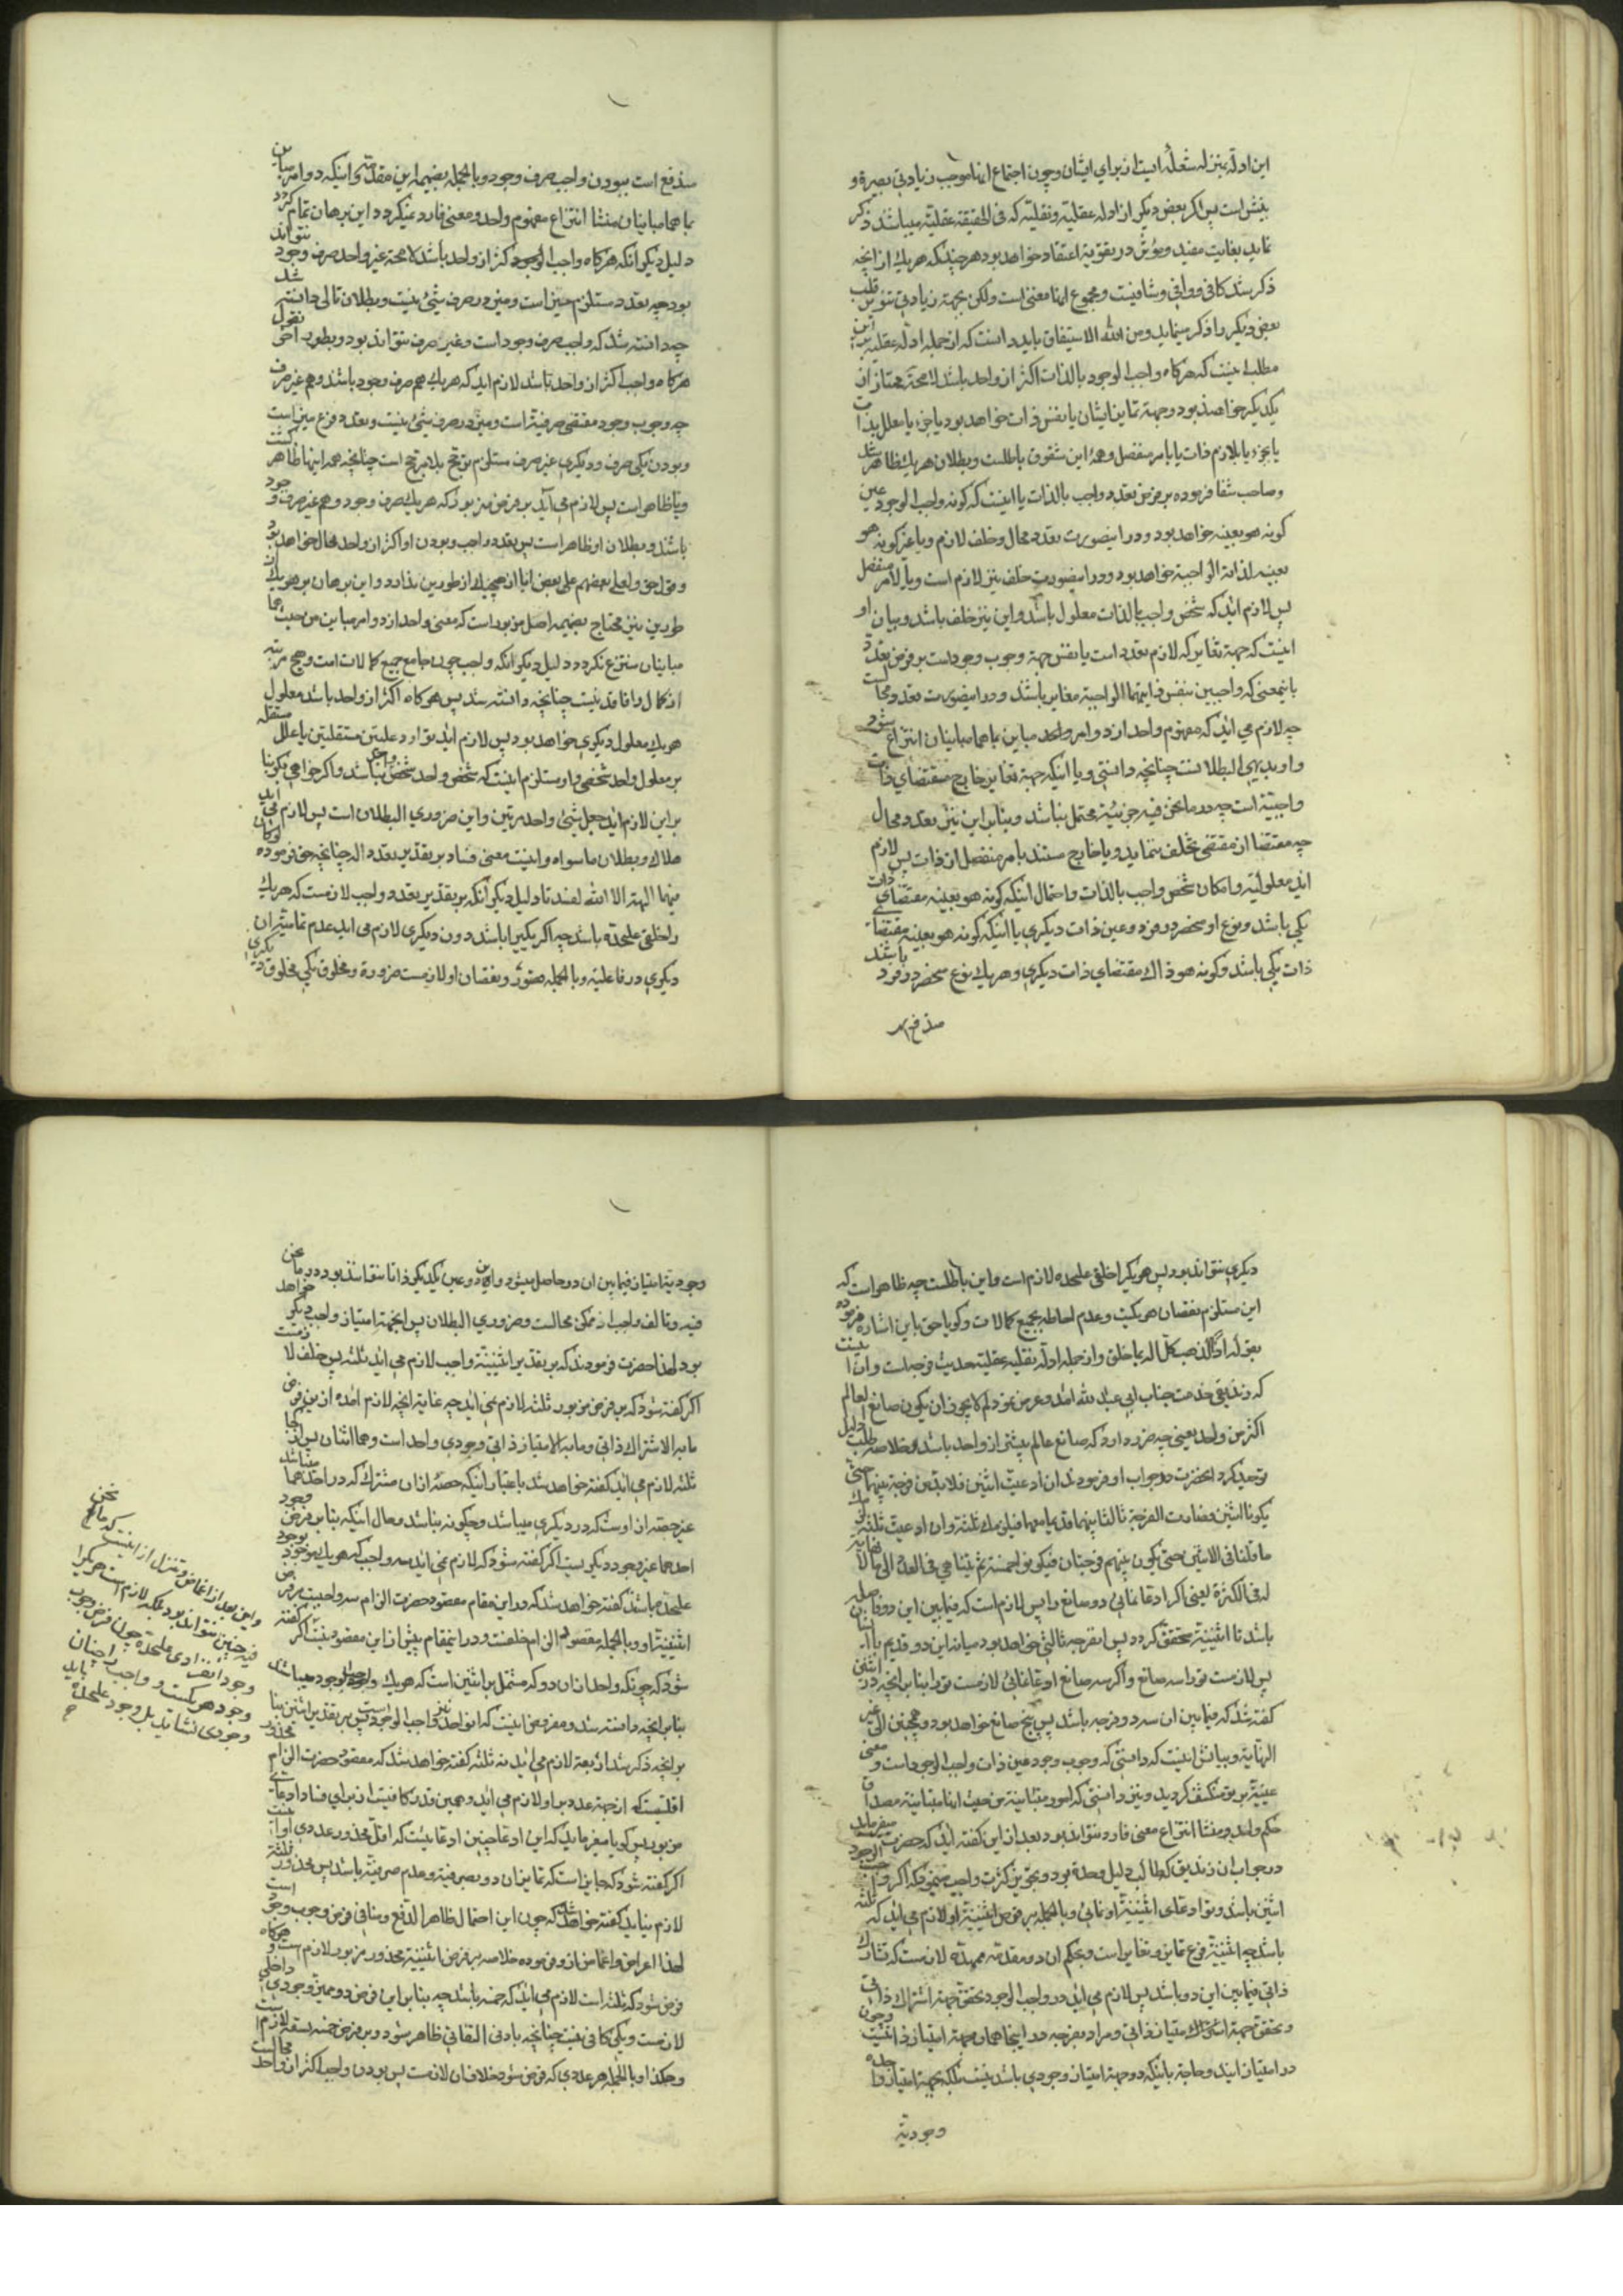 این ادله بمنزله شعله ایست از برای ایشان و چون اجتماع اینها موجب زیادتی بصیرة و
بینش است پس اگر بعض دیگر از ادله عقلیة و نقلیة که فی الحقیقة عقلیة میباشد ذکر
نماید بغایت مفید و مؤثر در تقویة اعتقاد خواهد بود هر چند که هر یک از آنچه
ذکر شد کافی و وافی و شافیست و مجموع اینها معنی است ولکن بجهة زیادتی تنویر قلب
بعض دیگر را ذکر مینماید ومن الله الاستیفاق باید دانست که از جمله ادله عقلیه بر این
مطلب اینست که هرکاه واجب الوجود بالذات اکثر از واحد باشد لامحة ممتاز از
یکدیگر خواهند بود و جهة تمایز ایشان یا نفس ذات خواهد بود یا جزء یا معلل بذات
یا بجزء یا بلازم ذات یا بامر منفصل و همه این شقوق باطلست و بطلان هر یک ظاهر شد
وصاحب شفا فرموده بر فرض تعدد واجب بالذات یا اینست که کونه واجب الوجود عین
کونه هو بعینه خواهد بود و در اینصورت تعدد محال و خلف لازم و یا غیر کونه هو
بعینه لذاته الواجبة خواهد بود و در اینصورت خلف نیز لازم است و یا لامر منفصل
پس لازم اید که شخص واجب بالذات معلول باشد و این نیز خلف باشد و بیان او
اینست که جهة تغایر که لازم تعدد است یا نفس جهة وجوب وجود است بر فرض تعدد
باینمعنی که واجبین بنفس ذاتیهما الواجبة مغایر باشند و در اینصورت تعدد محالست
چه لازم می اید که مفهوم واحد از دو امر واحد مباین بما هما مباینان انتزاع شود
و او بدیهی البطلانست چنانچه دانستی و یا اینکه جهة تغایر خارج مقتضای ذات
واجبیة است چه در ما نحن فیه جزئیة محتمل نباشد و بنابراین نیز تعدد محال
چه مقتضا از مقتضی تخلف ننماید و یا خارج مستند بامر منفصل از ذات پس لازم
اید معلولیة و امکان شخص واجب بالذات و احتمال اینکه کونه هو بعینه مقتضای ذات
یکی باشد و نوع او منحصر در فرد و عین ذات دیگری یا اینکه کونه هو بعینه مقتضای
ذات یکی باشد و کونه هو ذاک مقتضای ذات دیگری و هر یک نوع منحصر در فرد باشند
مندفع است
مندفع است ببودن واجب صرف وجود و بالجمله بضمیمه این مقدمة و اینکه دو امر مباین
بما هما مباینان منشا انتزاع مفهوم واحد و معنی فارد نمیگردد این برهان تمام کردد
دلیل دیگر آنکه هرکاه واجب الوجود اکثر از واحد باشد لامحة غیر واحد صرف وجود نتواند
بود چه تعدد مستلزم میز است و میز در صرف شیئ نیست و بطلان تالی دانسته شد
چه دانسته شد که واجب صرف وجود است و غیر صرف نتواند بود و بطور اخری نقول
هرکاه واجب اکثر از واحد باشد لازم اید که هر یک هم صرف وجود باشد و هم غیر صرف
چه وجوب وجود مقتضی صرفیة است و میز در صرف شیئ نیست و تعدد فرع میز است
و بودن یکی صرف و دیگری غیر صرف مستلزم ترجیح بلا مرجح است چنانچه همه اینها ظاهر گشت
و یا ظاهر است پس لازم می آید بر فرض مزبور که هر یک صرف وجود و هم غیر صرف وجود
باشند و بطلان او ظاهر است پس تعدد واجب و بودن او اکثر از واحد محال خواهد بود
و قول حق ولعلی بعضهم علی بعض ابا از هیچیک از طورین ندارد و این برهان بر هر یک از
طورین نیز محتاج بضمیمه اصل مزبور است که معنی واحد از دو امر مباین من حیث هما
مباینان منتزع نکردد دلیل دیگر آنکه واجب چون جامع جمیع کمالات است و هیچ مرتبه
از کمال را فاقد نیست چنانچه دانسته شد پس هرکاه اکثر از واحد باشد معلول
هر یک معلول دیگری خواهد بود پس لازم اید توارد علتین مستقلتین یا علل مستقله
بر معلول واحد شخصی و او مستلزم اینست که شخص واحد شخص واحد نباشد و اکر خواهی بکو بنا
بر این لازم اید جعل شیئ واحد مرتین و این ضروری البطلان است پس لازم می اید
هلاک و بطلان ماسواه و اینست معنی فساد بر تقدیر تعدد اله چنانچه حق فرموده لو کان
فیهما الهة الا الله لفسدتا دلیل دیگر آنکه بر تقدیر تعدد واجب لازمست که هر یک
را خلقی علیحده باشد چه اکر یکی را باشد دون دیگری لازم می اید عدم تمامیة ان
دیگری در فاعلیة و بالجمله قصور و نقصان او لازمست ضرورة و مخلوق یکی مخلوق دیگری
دیگری نتواند بود پس هر یکرا خلقی علیحده لازم است و این باطلست چه ظاهر است که
این مستلزم نقصان هر یکیست و عدم احاطه بجمیع کمالات و کویا حق باین اشاره فرموده
بقوله اذا لذهب کل اله بما خلق و از جمله ادله نقلیه عقلیة حدیث فرجه است و ان اینست
که زندیقی خدمت جناب ابی عبد الله امد و عرض نمود لم لا یجوز ان یکون صانع العالم
اکثر من واحد یعنی چه ضرر دارد که صانع عالم بیشتر از واحد باشد و خلاصه طلب دلیل
توحید کرد انحضرت در جواب او فرمودند ان ادعیت اثنین فلا بد من فرجة بینهما حتی
یکونا اثنین فصارت الفرجة ثالثا بینهما قدیما معهما فیلزمک ثلثة وان ادعیت ثلثة لزمک
ما قلنا فی الاثنین حتی یکون بینهم فرجتان فیکونوا خمسة ثم یتناهی فی العدد الی ما لا نهایة
له فی الکثرة یعنی اکر ادعا نمائی دو صانع را پس لازم است که فیما بین این دو فاصله
باشد تا اثنینیة متحقق کردد پس این فرجه ثالثی خواهد بود میانه این دو قدیم با اینها
پس لازمست تو را سه صانع و اکر سه صانع ادعا نمائی لازمست تو را بنابر انچه در اثنین
کفته شد که فیما بین ان سه دو فرجه باشد پس پنج صانع خواهد بود و همچنین الی غیر
النهایة و بیانش اینست که دانستی که وجوب وجود عین ذات واجب الوجود است و معنی
عینیة بر تو منکشف کردید و نیز دانستی که امور متباینة من حیث انها متباینة مصداق
حکم واحد و منشا انتزاع معنی فارد نتواند بود بعد از این کفته اید که حضرت میفرماید
در جواب ان زندیق که طالب دلیل وحدة بود و تجویز کثرت واجب مینمود که اکر واجب الوجود
اثنین باشد و تو ادعای اثنینیة او نمائی و بالجمله بر فرض اثنینیة او لازم می اید که ثلثه
باشد چه اثنینیة فرع تمایز و تغایر است و بحکم ان دو مقدمه ممهده لازمست که تشارک
ذاتی فیما بین این دو باشد پس لازم می اید در واجب الوجود تحقق جهة اشتراک ذاتی
و تحقق جهة امتیاز ذاتی و مراد بفرجه در اینجا همان جهة امتیاز ذاتیست و چون
در امتیاز انیک و حاجة باینکه دو جهة امتیاز وجودی باشد نیست بلکه بجهة امتیاز واحده
وجودیة
وجودیة امتیاز فیما بین ان دو حاصل میشود و این دو عین یکدیگر ذاتا نتوانند بود در ما نحن
فیه و تالف واجب از ممکن محالست و ضروری البطلان پس انجهة امتیاز واجب دیگر خواهد
بود لهذا حضرت فرمودند که بر تقدیر اثنینیة واجب لازم می اید ثلثه پس خلف لازمست
اکر کفته شود که بر فرض مزبور ثلثه لازم نمی اید چه غایة انچه لازم امده از این فرض
ما به الاشتراک ذاتی و ما به الامتیاز ذاتی وجودی واحد است و هما اثنان پس از کجا
ثلثه لازم می اید کفته خواهد شد باعتبار اینکه حصه از ان مشترک که در احدهما میباشد
غیر حصه از اوست که در دیگری میباشد و چکونه نباشد و حال اینکه بنابر فرض وجود
احدهما غیر وجود دیگریست اکر کفته شود که لازم نمی اید سه واجب که هر یک موجود بوجود
علیحده باشد کفته خواهد شد که در این مقام مقصود حضرت الزام سه واجبیت بر فرض
اثنینیة او و بالجمله مقصود الزام خلفست و در اینمقام بیش از این مقصود نیست اکر کفته
شود که چونکه واحد از ان دو که مشتمل بر اثنین است که هر یک واجب الوجود میباشد
بنابر انچه دانسته شد و مفروض اینست که ان واحد نیز واجب الوجودیست پس بر تقدیر اثنین بنا
بر انچه ذکر شد اربعة لازم می اید نه ثلثه کفته خواهد شد که مقصود حضرت الزام محذور
اقلیست که از جهة عدد بر او لازم می اید و همین قدر کافیست از برای فساد ادعای
مزبور پس کویا میفرماید که این ادعا چنین ادعائیست که اقل محذور عددی او اینست
اکر کفته شود که جایز است که تمایز ان دو بصرفیة و عدم صرفیة باشد پس محذور ثلثة
لازم نیاید کفته خواهد شد که چون این احتمال ظاهر الدفع و منافی فرض وجوب وجود است
لهذا اعراض و اغماض از او فرموده خلاصه بر فرض اثنینیة محذور مزبور لازم است و هرکاه
فرض شود که ثلثه است لازم می اید که خمسه باشد چه بنابر این فرض دو ممیز وجودی داخلی
لازمست و یکی کافی نیست چنانچه بادنی التفاتی ظاهر شود و بر فرض خمسه تسعه لازم است
و هکذا و بالجمله هر عددی که فرض شود خلاف ان لازمست پس بودن واجب اکثر از واحد محالست
و این بعد از اغماض و تنزل از اینست که ما نحن
فیه چنین نتواند بود بلکه لازم است هر یکرا
وجود انفرادی علیحده چون فرض وجوب
وجود هر یکست و واجب را چنان
وجودی نشاید بل وجود علیحده باید